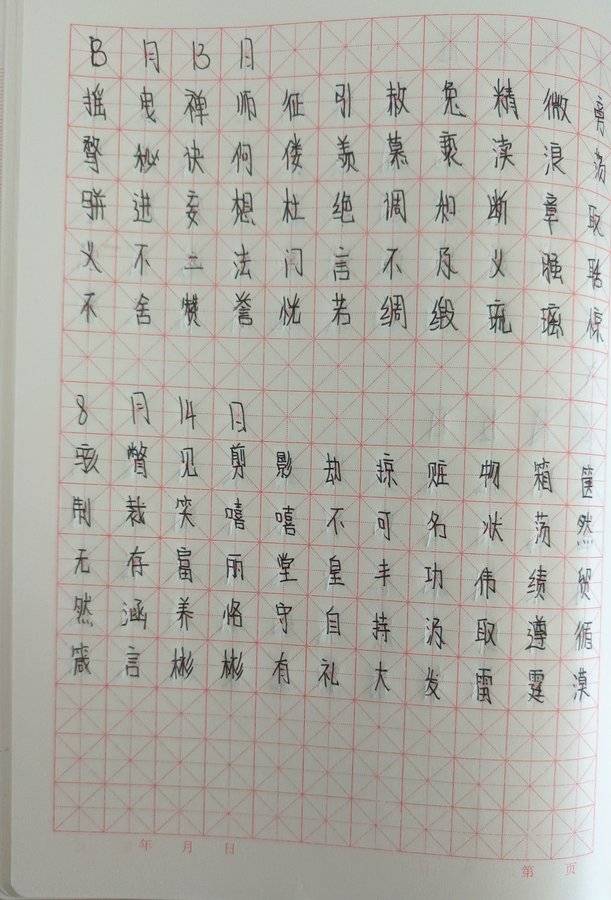 8月13日
摇曳禅师征引赦免精微离
骛秘诀伺偻羡慕亵渎浪荡
骈进妄想杜绝调和断章取
义不二法门言不及义强聒
不舍赞誉恍若绸缎琉璃惊
8月14日
骇瞥见剪影劫掠赃物箱箧
制裁笑嘻嘻不可名状荡然
无存富丽堂皇丰功伟绩贸
然涵养恪守自持汲取遵循
箴言彬彬有礼大发雷霆漠
年 月 日
第 页